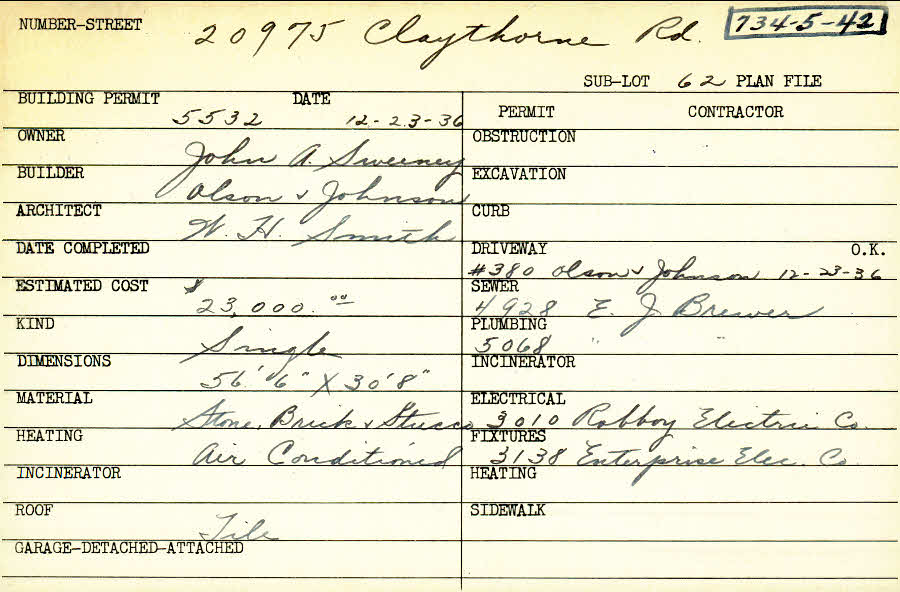 NUMBER-STREET 20975 Claythorne Rd. 734-5-42
SUB-LOT 62 PLAN FILE
BUILDING PERMIT 5532 DATE 12-23-36
OWNER John A. Sweeney
BUILDER Olson & Johnson
ARCHITECT W. H. Smith
DATE COMPLETED
ESTIMATED COST $23,000.00
KIND Single
DIMENSIONS 56'6" X 30'8"
MATERIAL Stone, Brick & Stucco
HEATING Air Conditioned
INCINERATOR
ROOF Tile
GARAGE-DETACHED-ATTACHED
PERMIT CONTRACTOR
OBSTRUCTION
EXCAVATION
CURB
DRIVEWAY O.K.
#380 Olson & Johnson 12-23-36
SEWER
4928 E. J. Brewer
PLUMBING
5068 " "
INCINERATOR
ELECTRICAL
3010 Robboy Electric Co.
FIXTURES
3138 Enterprise Elec. Co.
HEATING
SIDEWALK